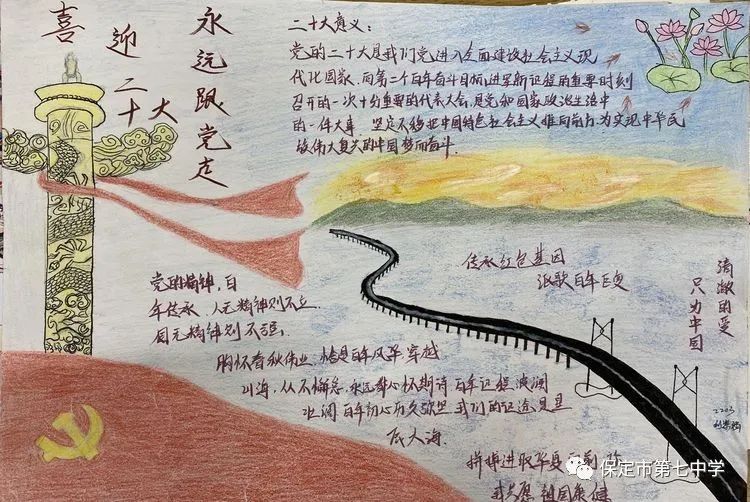 喜
迎
二十大
永远跟党走
二十大意义：
党的二十大是我们党进入全面建设社会主义现
代化国家、向第二个百年奋斗目标进军新征程的重要时刻
召开的一次十分重要的代表大会，是党和国家政治生活中
的一件大事 坚定不移
中国特色社会主义
前行，为实现中华民
族伟大复兴的中国梦而奋斗．
传承红色基因
讴歌百年巨变
清澈的爱
只为中国
党的精神，百
年传承，人无精神则不立
国无精神则不强．
胸怀春秋伟业 恰是百年风华 穿越
山海，从不懈怠，永远
怀期诗 百年征程 波澜
壮阔 百年初心历久弥坚 我们的征途是星
辰大海
拼搏进取华夏
祖国康健
2203
保定市第七中学